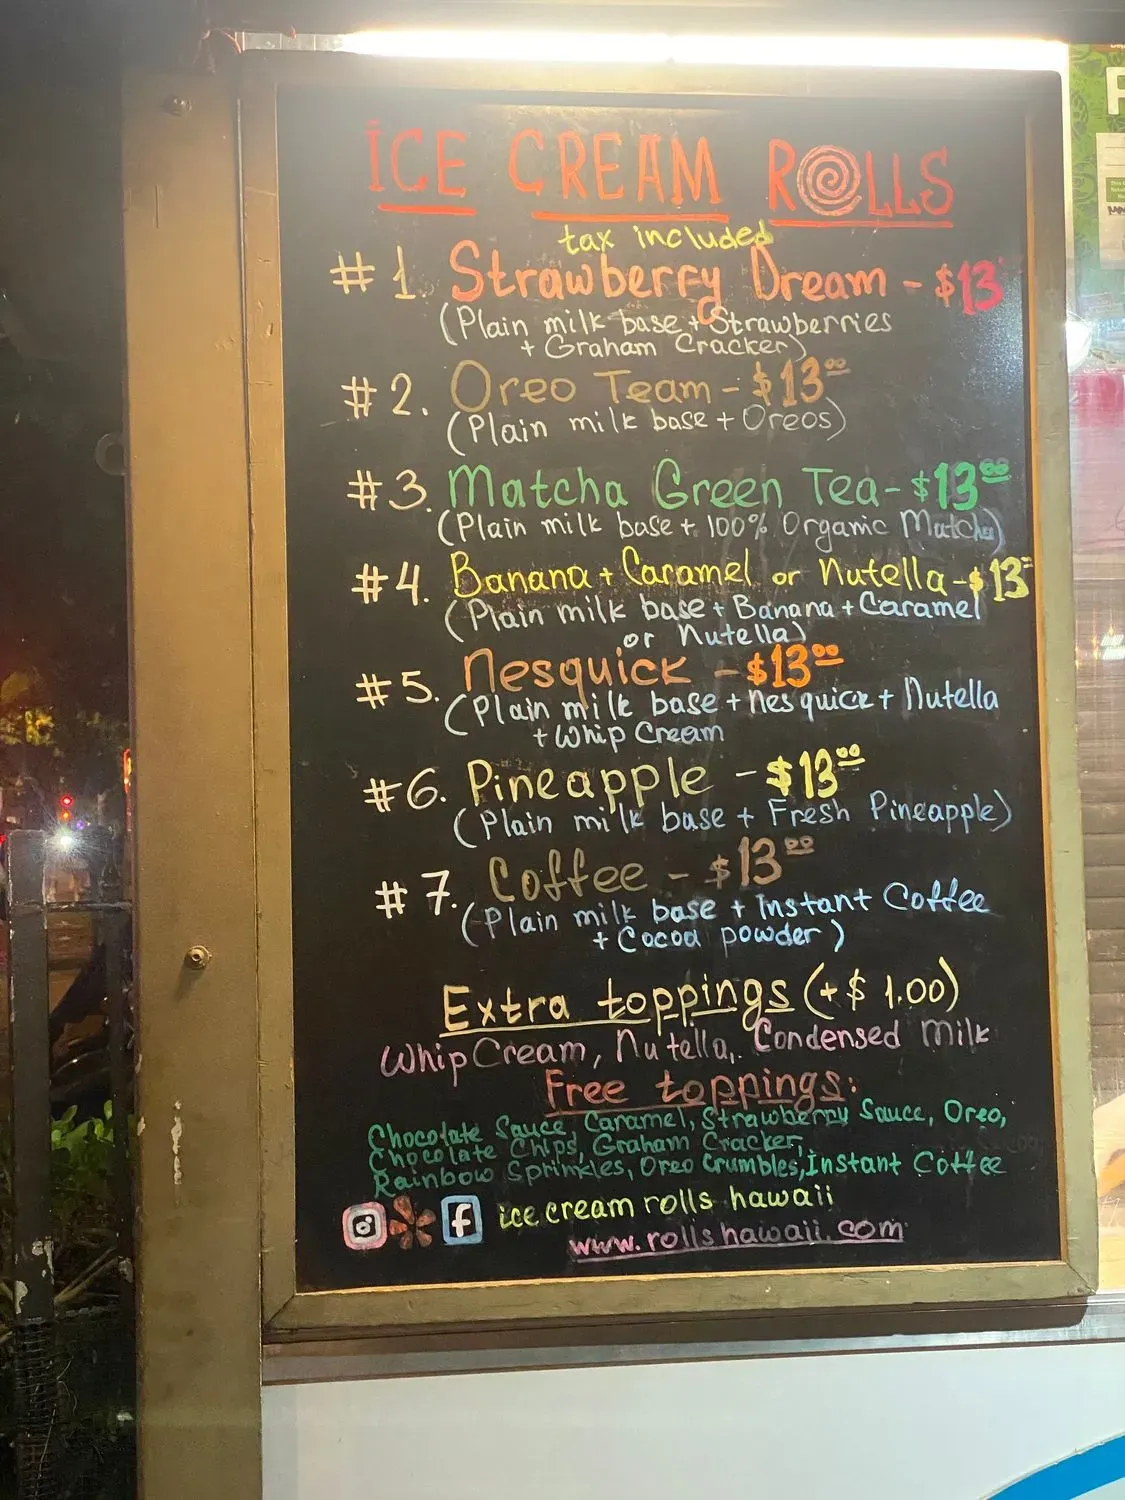 ICE CREAM ROLLS
tax included
#1. Strawberry Dream - $13
(Plain milk base + Strawberries
+ Graham Cracker)
#2. Oreo Team - $13.00
(Plain milk base + Oreos)
#3. Matcha Green Tea - $13.00
(Plain milk base + 100% Organic Matcha)
#4. Banana + Caramel or Nutella - $13
(Plain milk base + Banana + Caramel
or Nutella)
#5. Nesquick - $13.00
(Plain milk base + Nesquick + Nutella
+ Whip Cream
#6. Pineapple - $13.00
(Plain milk base + Fresh Pineapple)
#7. Coffee - $13.00
(Plain milk base + Instant Coffee
+ Cocoa powder)
Extra toppings (+ $ 1.00)
Whip Cream, Nutella, Condensed Milk
Free toppings:
Chocolate Sauce, Caramel, Strawberry Sauce, Oreo,
Chocolate Chips, Graham Cracker,
Rainbow Sprinkles, Oreo Crumbles, Instant Coffee
ice cream rolls hawaii
www.rollshawaii.com